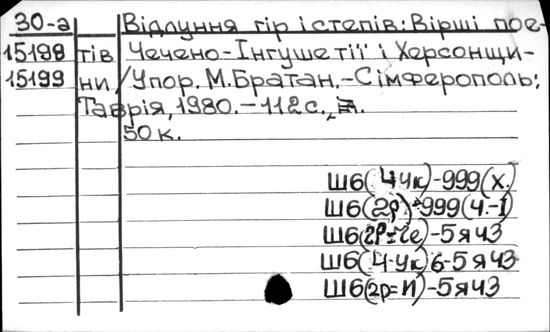 30-а Відлуння гір і степів: Вірші пое-
15198 тів Чечено-Інгушетії і Херсонщи-
15199 ни/Упор. М.Братан.-Сімферополь:
Таврія, 1980.-112с.,
50к.
Ш6(4Ук)-999(Х.)
Ш6(2Р)-999(Ч.-І)
Ш6(2Р=Че)-5яЧЗ
Ш6(4Ук)6-5яЧЗ
Ш6(2Р=И)-5яЧЗ